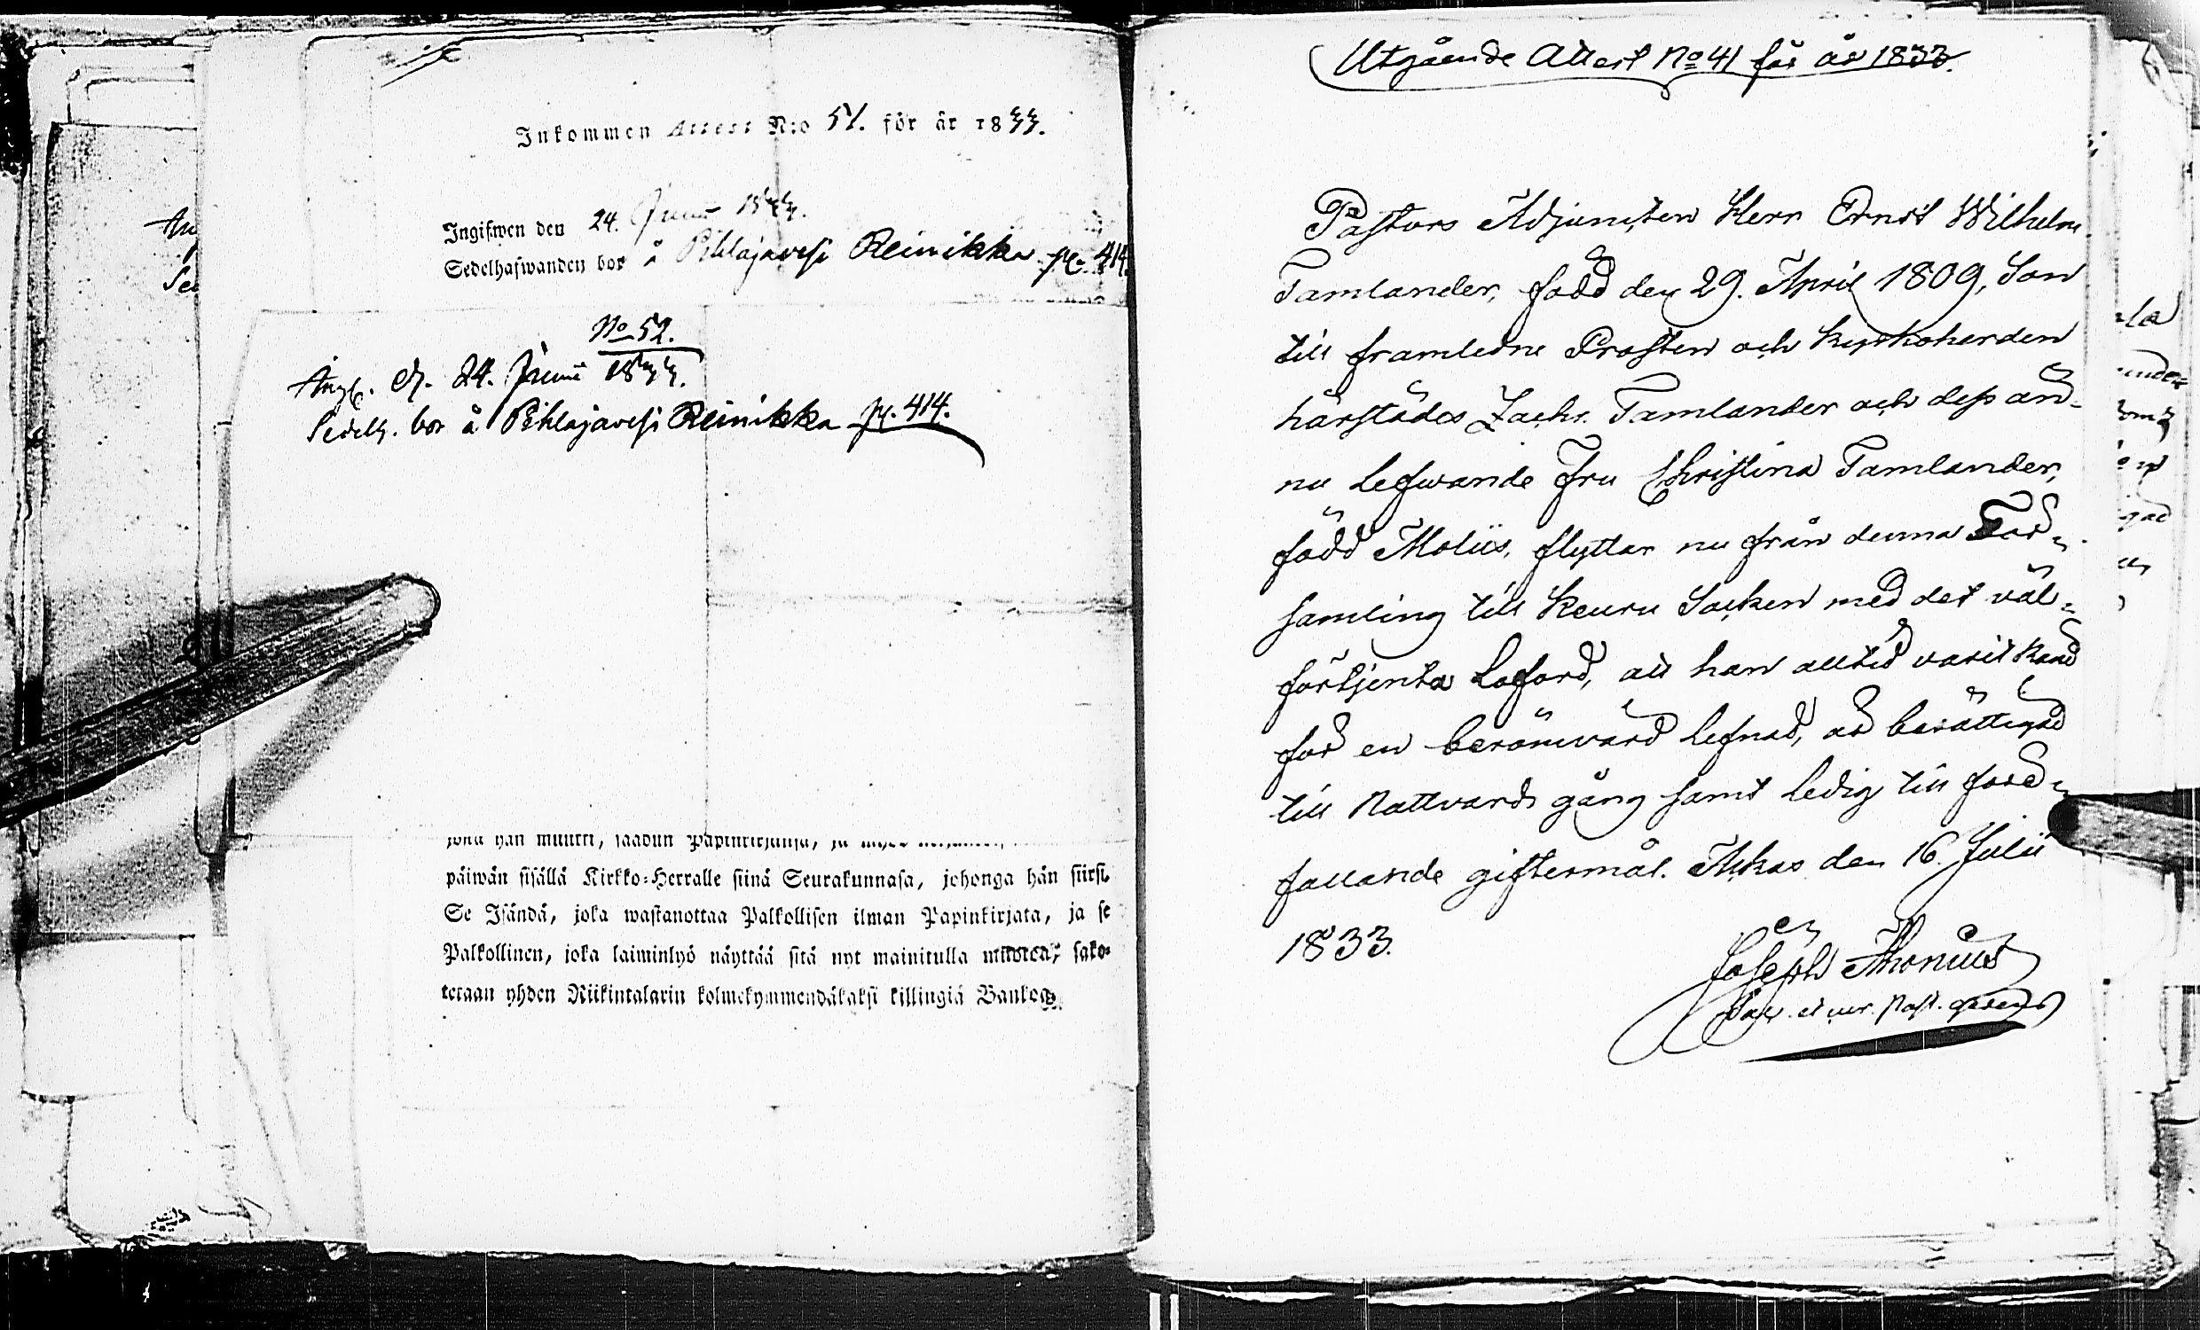 Inkommen Attest N:o 51. för år 1833.
Ingifwen den 24. Junii 1833.
Sedelhafwanden bor å Pihlajavesi Reinikka p. 414.
No 52.
1833.
Angf. d. 24. Junii
Sedelh. bor å Pihlajavesi Reinikka p. 414.
hän muutti, saadun Papinkirjansa, ja
päiwän sisällä Kirkko-Herralle siinä Seurakunnasa, johonga hän siirsi.
Se Isändä, joka wastanottaa Palkollisen ilman Papinkirjata, ja se
Palkollinen, joka laiminlyö näyttää sitä nyt mainitulla muotoa, sako-
tetaan yhden Riikintalarin kolmekymmendäkaksi killingiä Bankos.
Utgående Attest No 41 för år 1833.
Pastors Adjuncten Herr Ernst Wilhelm
Tamlander, född den 29. April 1809, Son
till framledne Prosten och Kyrkoherden
härstädes Zachr. Tamlander och dess än-
nu lefwande Fru Christina Tamlander,
född Moliis, flyttar nu från denna För-
samling till Keuru Socken med det väl-
förtjenta Loford, att han alltid varit känd
för en berömvärd lefnad, är berättigad
till Nattvards gång samt ledig till före-
fallande giftermål. Akkas den 16. Julii
1833.
Joseph Thonius
Sac. et cur. Past. gerens